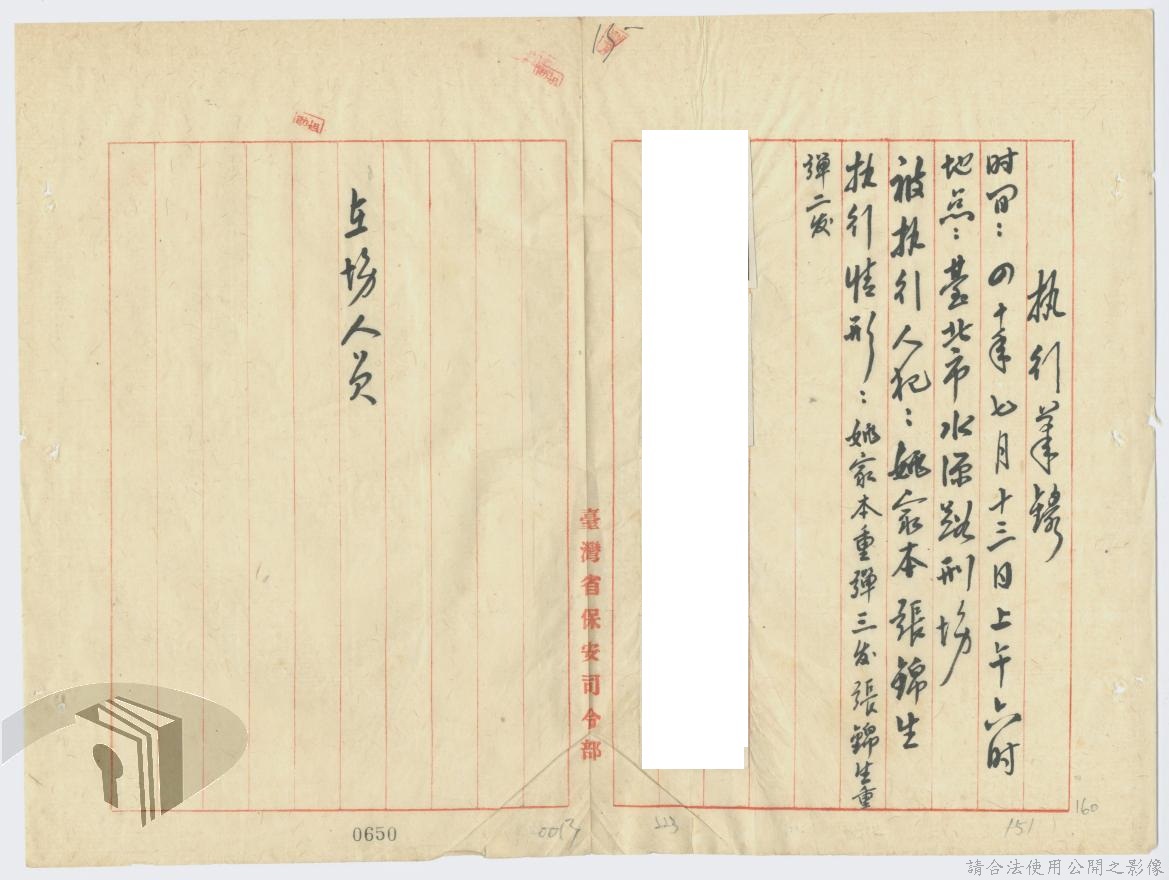 执行筆錄
时间：四十年七月十三日上午六时
地点：臺北市水源路刑場
被执行人犯：姚家本張錦生
执行情形：姚家本重彈三发張錦生重
彈二发
在場人员
臺灣省保安司令部
15
0650
0013
223
151
160
請合法使用公開之影像